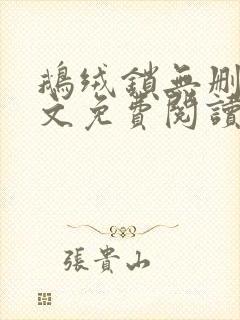 鵝絨鎖無刪
文免費閱讀
張貴山